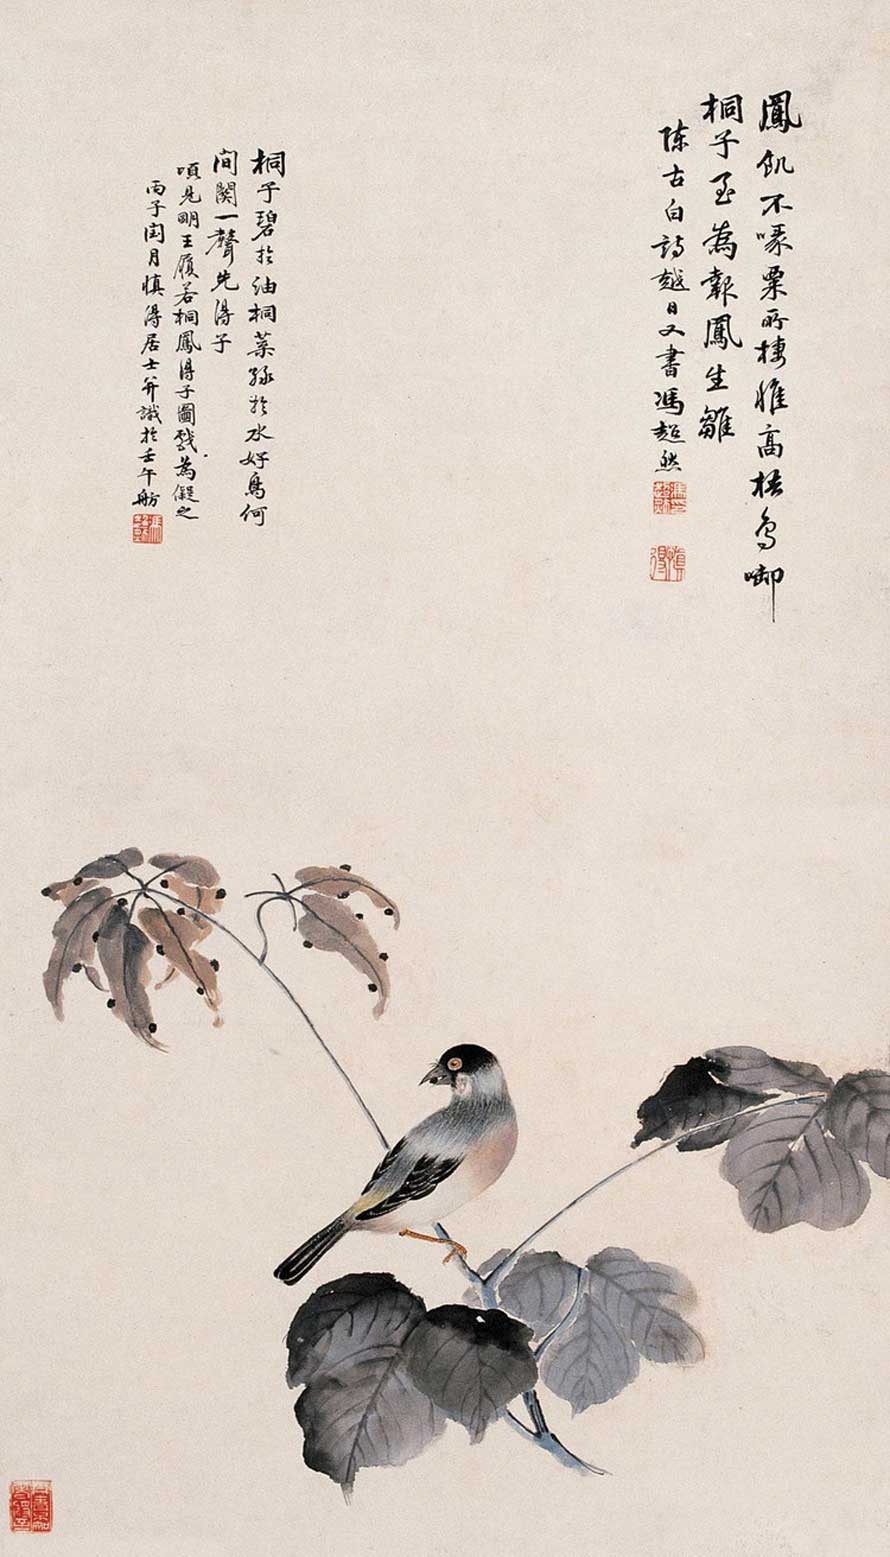 鳳飢不啄粟所棲惟高梧鳥啣
桐子至為報鳳生雛
陳古白詩越日又書馮超然
桐子碧於油桐葉綠於水好鳥何
間關一聲先得子
頃見明王履若桐鳳得子圖戲為儗之
丙子閏月慎得居士并識於壬午舫